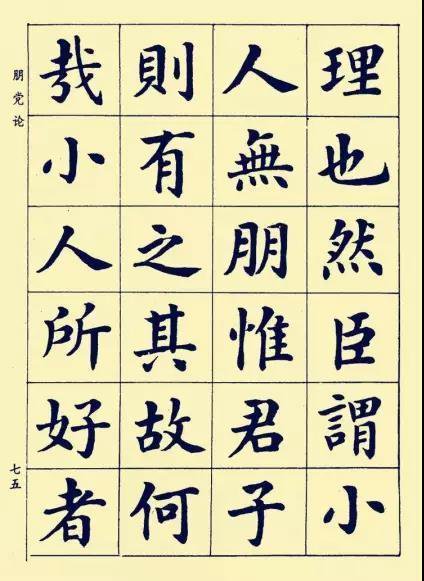 理也然臣謂小
人無朋惟君子
則有之其故何
哉小人所好者
朋党论
七五